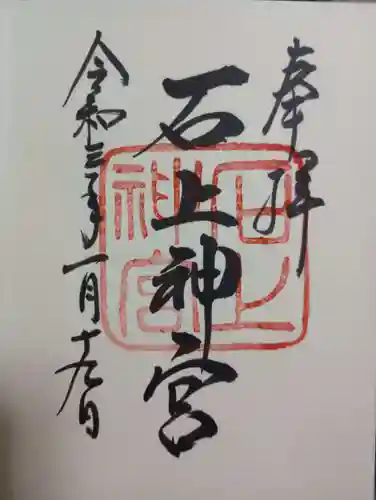 奉拝
石上神宮
令和三年一月十九日
石上神宮